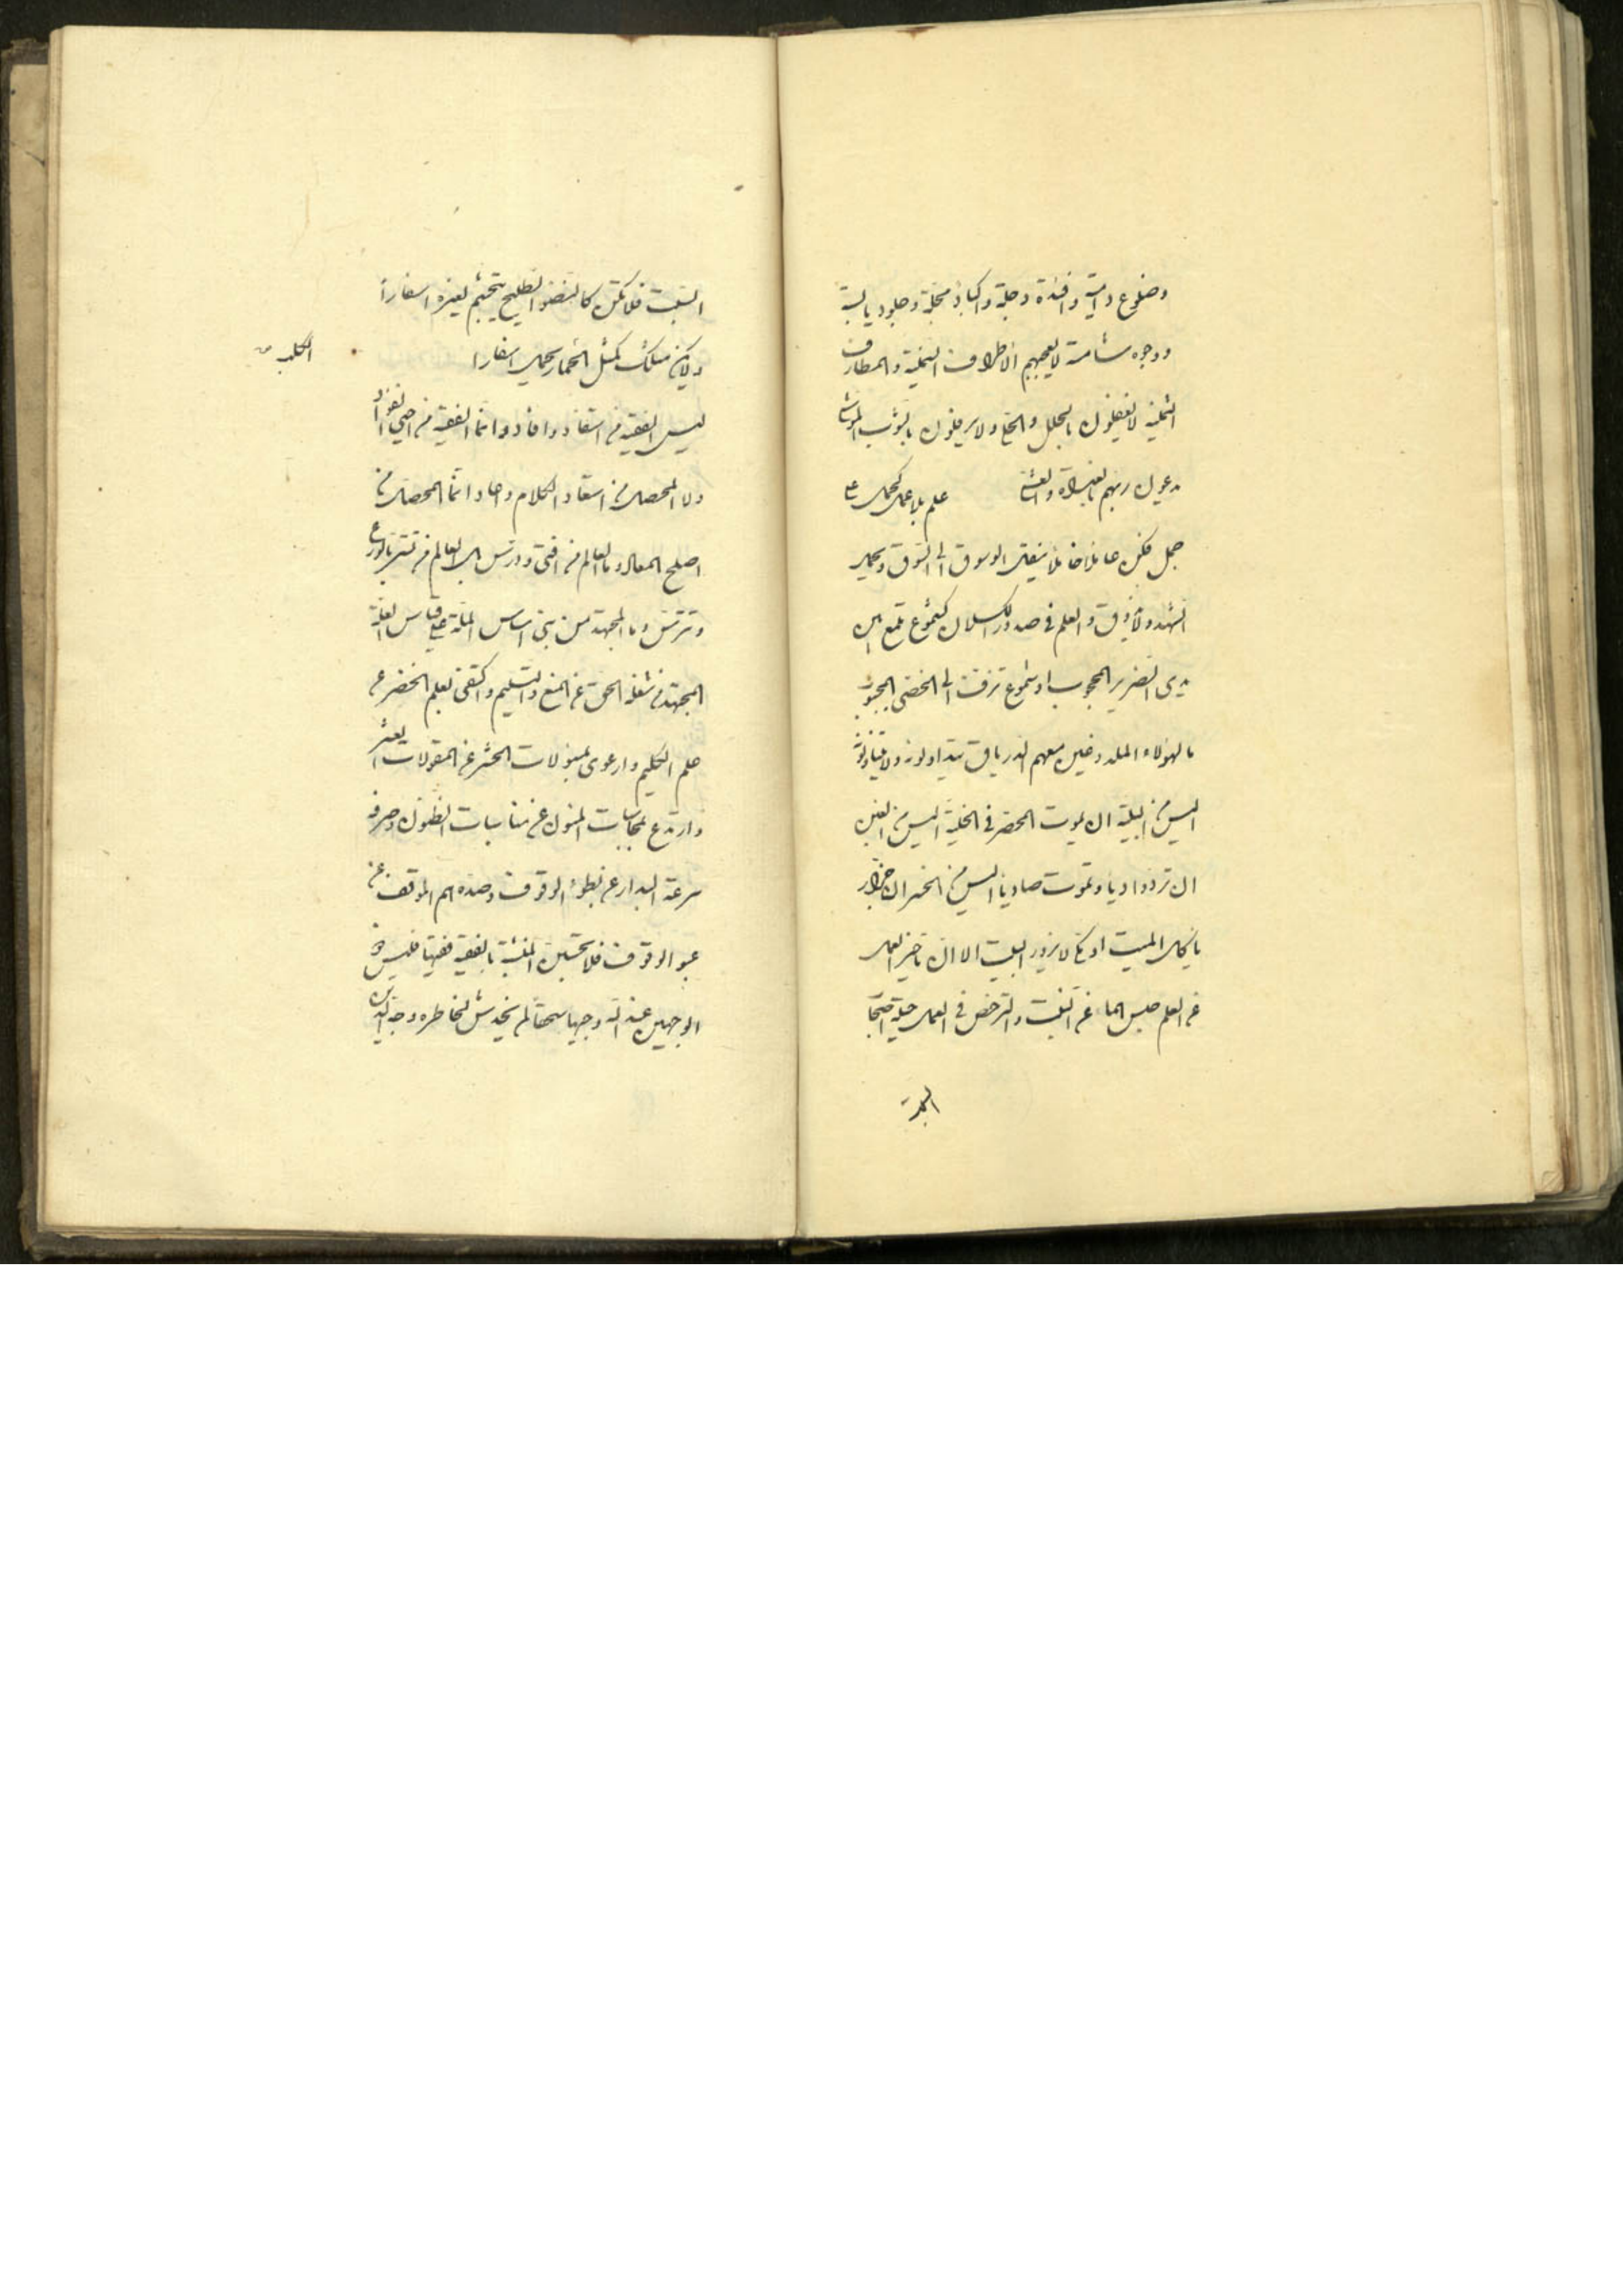 وضلوع دامية وافئدة وجلة واكباد وجلود يابسة
ووجوه شاحبة لا يعجبهم الاطراف النخية والمطارف
الثمينة لا يحفلون بالحلل والخلع ولا يرفلون بالثوب الموشى
يدعون ربهم بالغداة والعشي علم بلا عمل كحمل على
جمل فكن عاملا خاملا ينقل الوسوق الى السوق ويحمل
الشهد ولا يذوق والعلم في صدور الكسلان كشموع تلمع بين
يدي الضرير المحجوب او شموع تزف الى الخصي المجبوب
ما لهؤلاء الملدوغين معهم الدرياق يتداولونه ولا يتناولونه
اليس من البلية ان يموت الخضر في الحلية اليس من الغبن
ان ترد واديا وتموت صاديا اليس من الخسران جزار
ياكل الميت او مكي لا يزور البيت الا ان تاخير العمل
عن العلم حبس الماء عن النبت والترخص في العمل حيلة اصحاب
السبت
السبت فلا تكن كالنضو الطليح يتجشم لغيره اسفارا
ولا يكن مثلك كمثل الحمار يحمل اسفارا الكلمة
ليس الفقيه من استفاد وافاد وانما الفقيه من احيى الفؤاد
ولا المحصل من استعاد الكلام واعاد انما المحصل من
اصلح المعاد وما العالم من افتى ودرس بل العالم من تستر بالورع
وتترس وما المجتهد من بنى اساس الملة على قياس العلة
المجتهد من شغله الحق عن المنع والتسليم واكتفى بعلم الخضر عن
علم الكليم وارعوى بمهولات الحشر عن المقولات العشر
وارتدع بمحاسبات المنون عن مناسبات الظنون وصرفه
سرعة البدار عن بطوء الوقوف وصده هم الموقف عن
الوقوف فلا تحسبن المنبه بالفقيه فقيها فليس ذو
الوجهين عند الله وجيها سحقا لم يخدش لخاطره وجه الدين